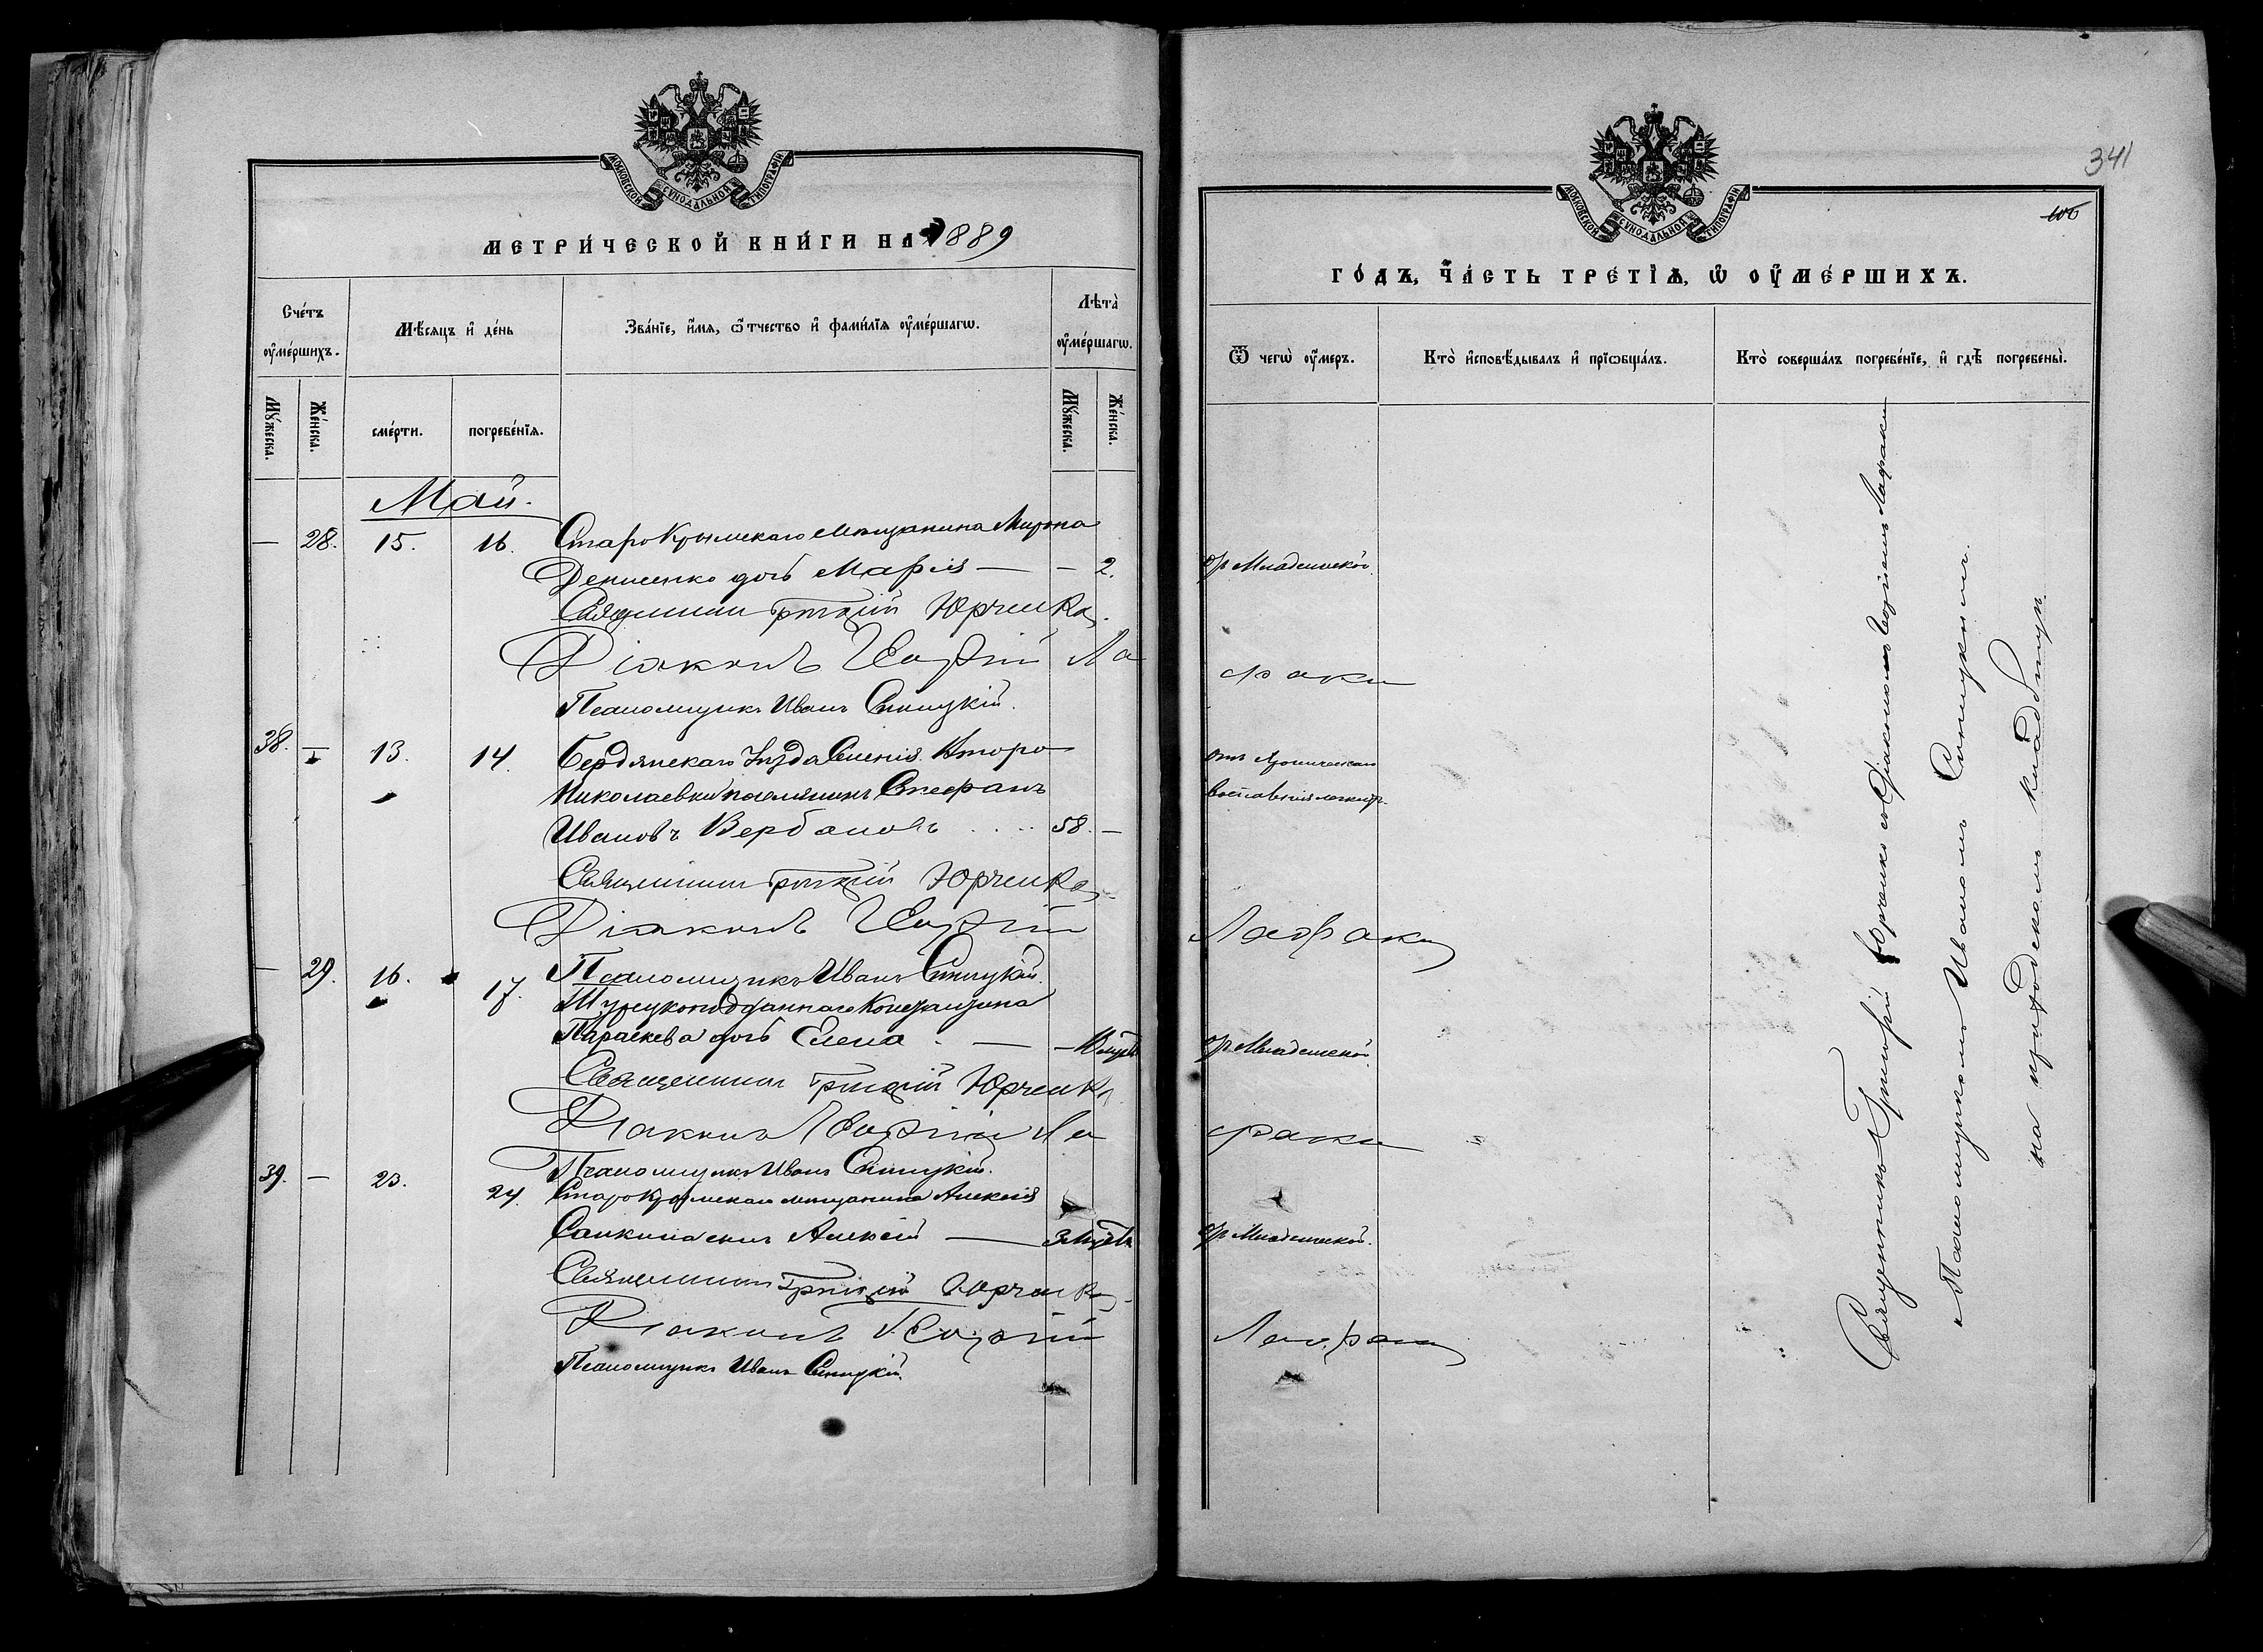 МОСКОВСКОЙ СѴНОДАЛЬНОЙ ТИПОГРАФІИ
МЕТРИ́ЧЕСКОЙ КНИ́ГИ НА 1889
Сче́тъ ᲂу҆ме́ршихъ.
Мѣ́сяцъ и҆ де́нь
Зва́нїе, и҆́мѧ, ѻ҆́тчество и҆ фами́лїѧ ᲂу҆ме́ршагѡ.
Лѣта̀ ᲂу҆ме́ршагѡ.
Му́жеска.
Же́нска.
сме́рти.
погребе́нїѧ.
Му́жеска.
Же́нска.
Май.
— 28. 15. 16. Старокрымскаго мѣщанина Мирона
Денисенко дочь Марія — — 2.
Священникъ Григорій Юрченко
Діаконъ Георгій Ла
Псаломщикъ Иванъ Синицкій.
38. — 13. 14. Бердянскаго Уѣзда Селенія Второ
Николаевки поселянинъ Стефанъ
Ивановъ Вербановъ 58. —
Священникъ Григорій Юрченко
Діаконъ Георгій
Псаломщикъ Иванъ Синицкій.
— 29. 16. 17. Турецкоподданнаго Константина
Параскева дочь Елена — —
Священникъ Григорій Юрченко
Діаконъ Георгій Ла
Псаломщикъ Иванъ Синицкій.
39. — 23. 24. Старокрымскаго мѣщанина Алексія
сынъ Алексій — 3
Священникъ Григорій Юрченко
Діаконъ Георгій
Псаломщикъ Иванъ Синицкій.
341
МОСКОВСКОЙ СѴНОДАЛЬНОЙ ТИПОГРАФІИ
ГО́ДЪ, ЧА́СТЬ ТРЕ́ТЇѦ, Ѡ҆ ОУ҆МЕ́РШИХЪ.
Ѿ чегѡ̀ ᲂу҆́меръ.
Кто̀ и҆сповѣ́дывалъ и҆ прїѡбща́лъ.
Кто̀ соверша́лъ погребе́нїе, и҆ гдѣ̀ погребены̀.
Младенческой
факи
отъ хроническаго
воспаленія легкихъ
Лафаки
Младенческой
факи
Младенческой.
Лафаки
Священникъ Григорій Юрченко съ Діакономъ Георгіемъ Лафаки
и Псаломщикомъ Иваномъ Синицкимъ.
на приходскомъ кладбищѣ